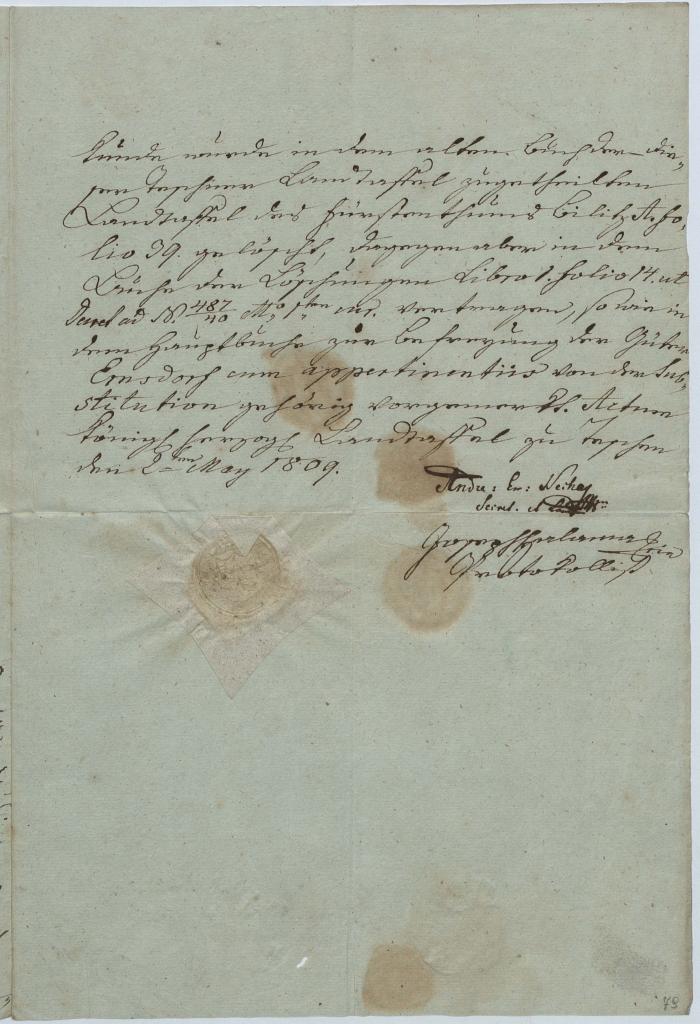 kunde wurde in dem alten Buche der die-
ser Teschner Landtaffel zugetheilten
Landtaffel des Fürstenthums Bilitz A. fo-
lio 39. gelöscht, dagegen aber in dem
Buche der Löschungen Libro 1. folio 14. ut
Decret ad N. 487/40 vertragen, so wie in
dem Hauptbuche zur Befreyung der Güter
Ernsdorf cum appertinentiis von der Sub-
stitution gehörig vorgemerkt. Actum
Königl. herzogl. Landtaffel zu Teschen
den 2ten May 1809.
Secret.
Joseph
Protokollist
79